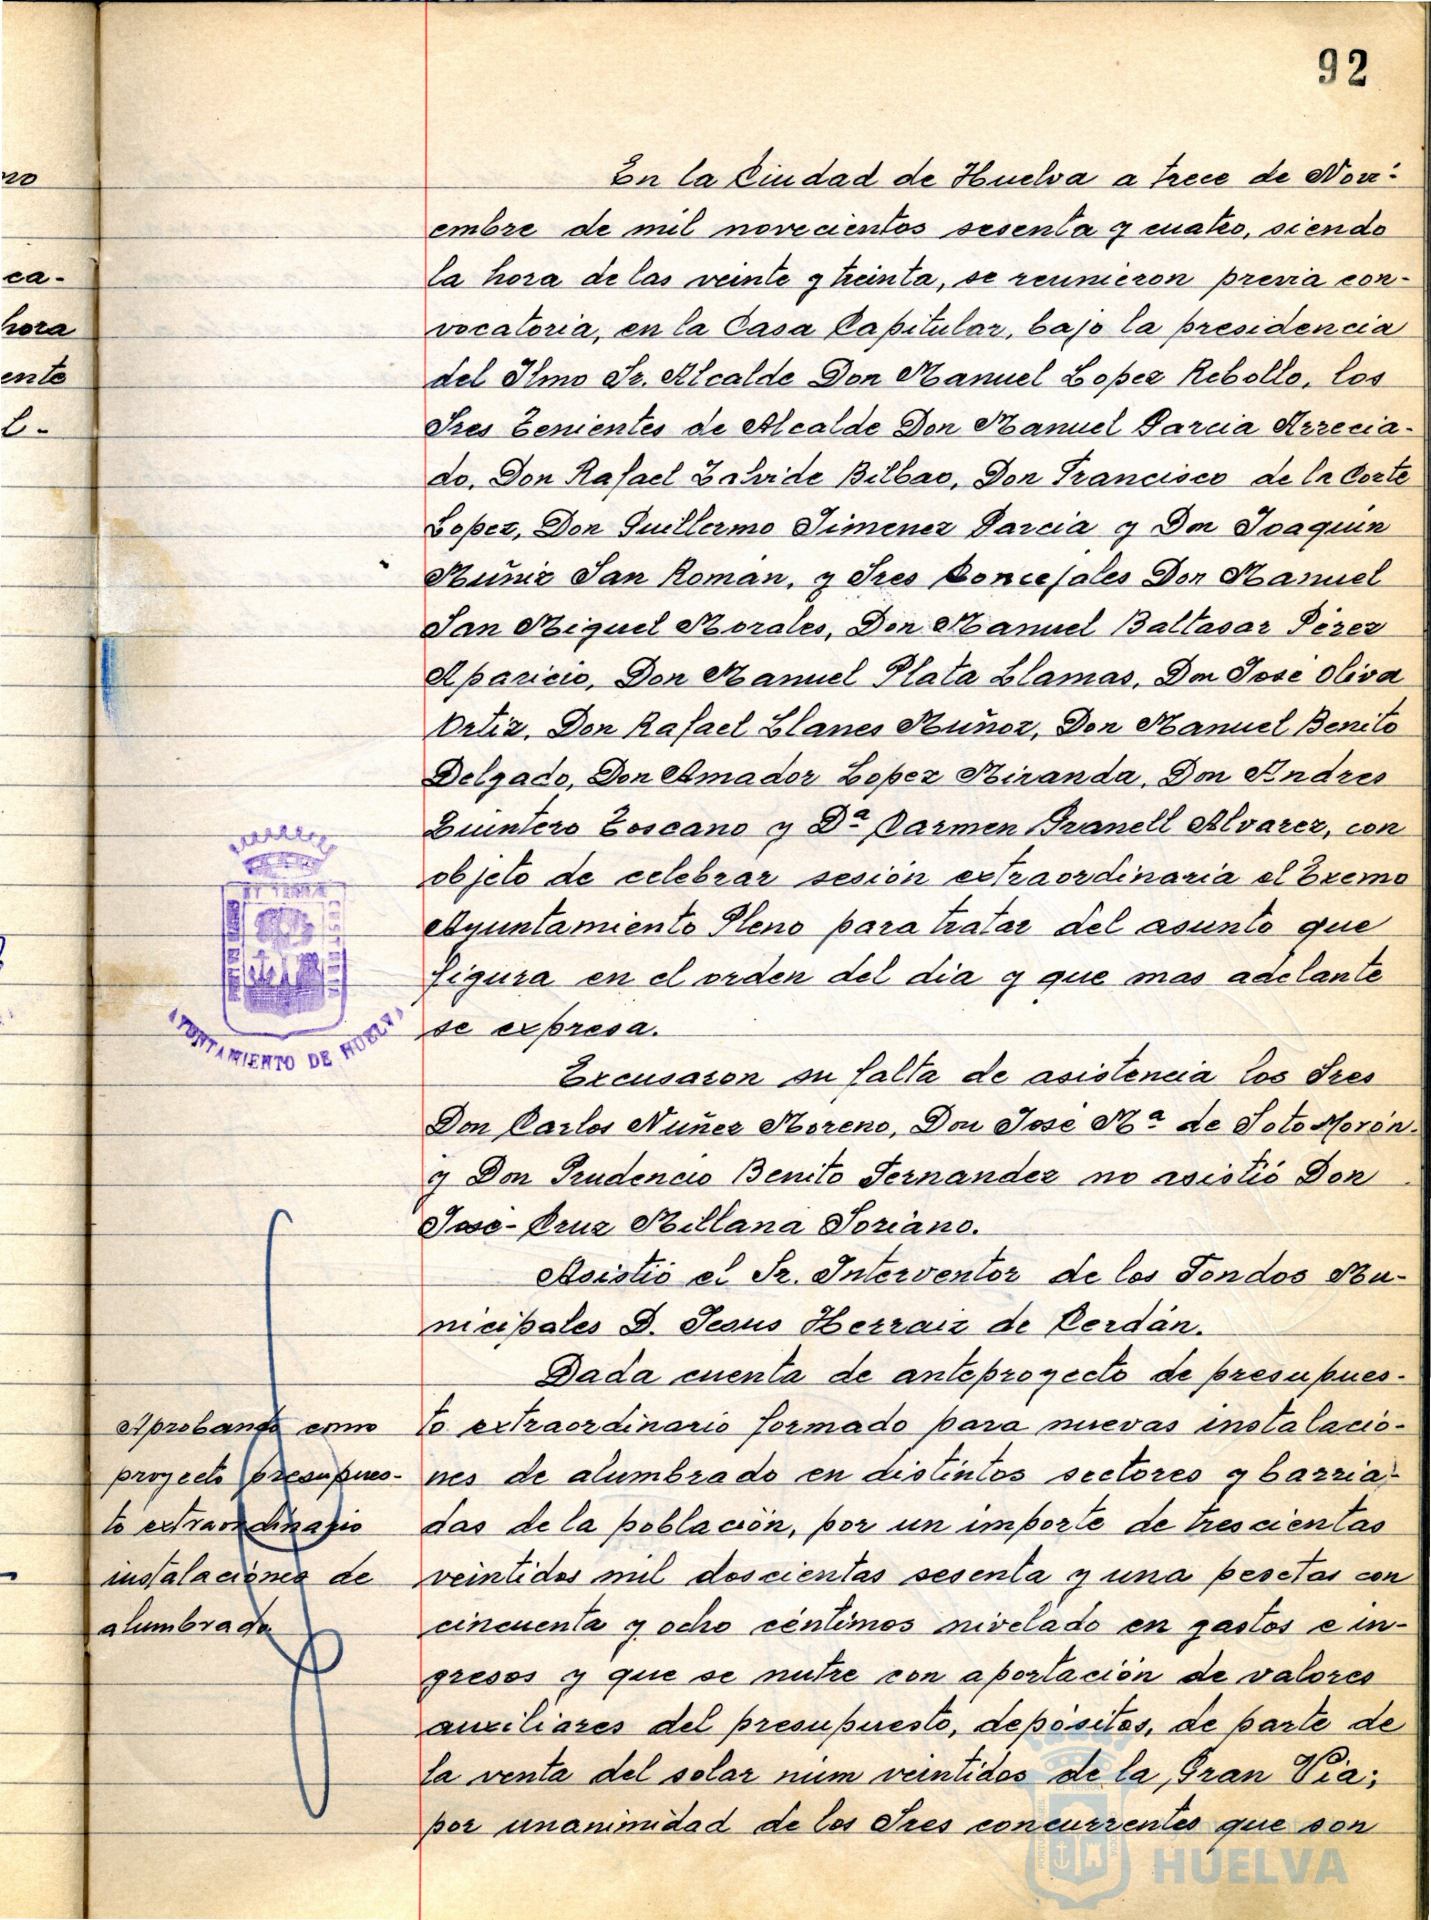 92
En la Ciudad de Huelva a trece de Novi-
embre de mil novecientos sesenta y cuatro, siendo
la hora de las veinte y treinta, se reunieron previa con-
vocatoria, en la Casa Capitular, bajo la presidencia
del Ilmo Sr. Alcalde Don Manuel Lopez Rebollo, los
Sres Tenientes de Alcalde Don Manuel Garcia Arrecia-
do, Don Rafael Zalvide Bilbao, Don Francisco de la Corte
Lopez, Don Guillermo Jimenez Garcia y Don Joaquin
Muñiz San Roman, y Sres Concejales Don Manuel
San Miguel Morales, Don Manuel Baltasar Pérez
Aparicio, Don Manuel Plata Llamas, Don José Oliva
Ortiz, Don Rafael Llanes Muñoz, Don Manuel Benito
Delgado, Don Amador Lopez Miranda, Don Andres
Quintero Toscano y Dª Carmen Granell Alvarez, con
objeto de celebrar sesión extraordinaria el Excmo
Ayuntamiento Pleno para tratar del asunto que
figura en el orden del dia y que mas adelante
se expresa.
Excusaron su falta de asistencia los Sres
Don Carlos Nuñez Moreno, Don José Mª de Soto Morón
y Don Prudencio Benito Fernandez no asistió Don
José-Cruz Millana Soriano.
Asistió el Sr. Interventor de los Fondos Mu-
nicipales D. Jesus Herraiz de Cerdán.
Dada cuenta de anteproyecto de presupues-
to extraordinario formado para nuevas instalacio-
nes de alumbrado en distintos sectores y barria-
das de la población, por un importe de trescientas
veintidos mil doscientas sesenta y una pesetas con
cincuenta y ocho céntimos nivelado en gastos e in-
gresos y que se nutre con aportación de valores
auxiliares del presupuesto, depósitos, de parte de
la venta del solar núm veintidos de la Gran Via;
por unanimidad de los Sres concurrentes que son
Aprobando como
proyecto presupues-
to extraordinario
instalaciónes de
alumbrado
AYUNTAMIENTO DE HUELVA
ca-
hora
ente
HUELVA